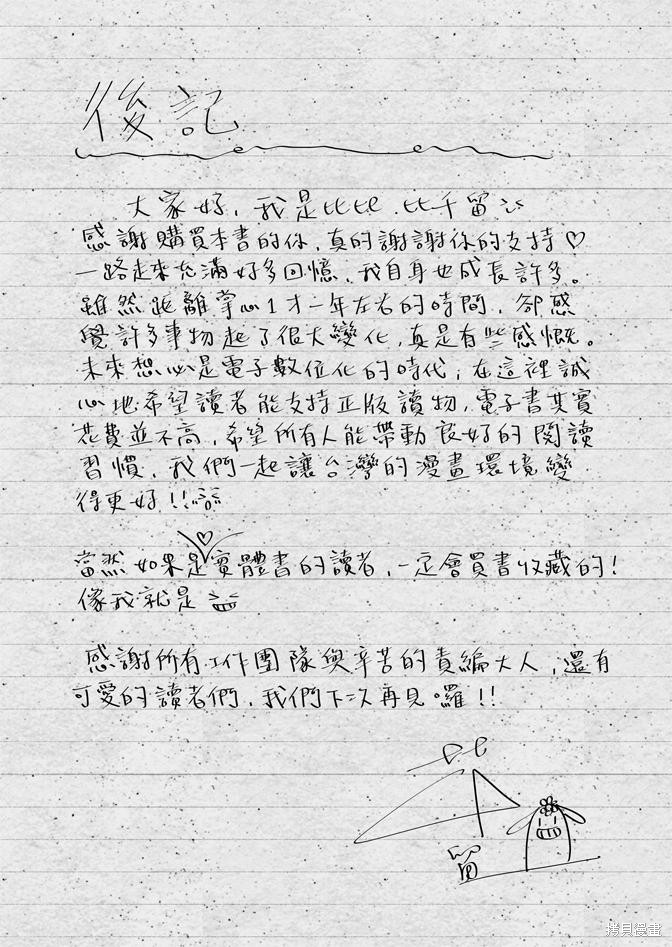 後記
大家好，我是比比，比千留
感謝購買本書的你，真的謝謝你的支持♡
一路走來充滿好多回憶，我自身也成長許多。
雖然距離掌心1才一年左右的時間，卻感
覺許多事物起了很大變化，真是有些感慨。
未來想必是電子數位化的時代，在這裡誠
心地希望讀者能支持正版讀物，電子書其實
花費並不高，希望所有人能帶動良好的閱讀
習慣，我們一起讓台灣的漫畫環境變
得更好!!
當然如果是♡實體書的讀者，一定會買書收藏的!
像我就是
感謝所有工作團隊與辛苦的責編大人，還有
可愛的讀者們，我們下次再見囉!!
比千
留
拷貝漫畫